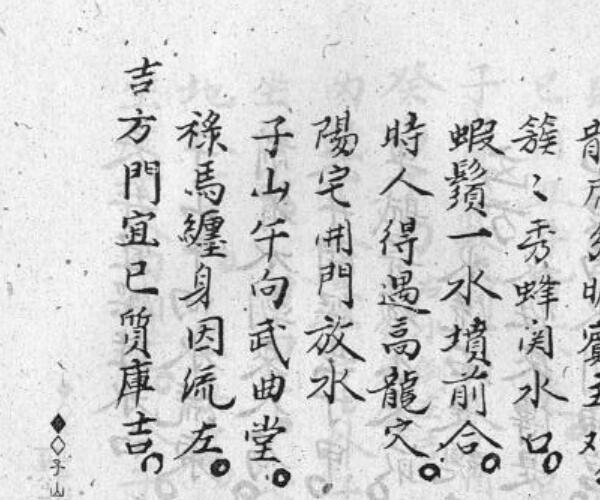 簇〻秀蜂関水口
蝦鬚一水墳前合
時人得遇高龍穴
陽宅開門放水
子山午向武曲堂
祿馬纏身因流左
吉方門宜巳質庫吉
子山